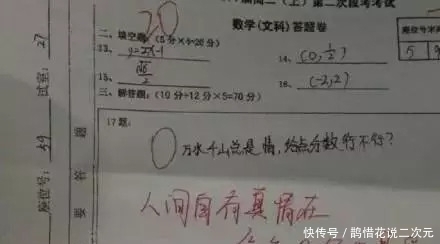 高二(上)第二次段考考试
数学(文科)答题卷
二、填空题:(5分×4=20分)
20
13、y=2x-1
14、(0,1/2)
15、√6/2
16、(-2,2)
三、解答题:(10分+12分×5=70分)
17题:
0
万水千山总是情,给点分数行不行?
人间自有真情在
试室:27
座位号:
答
要
快传号/鹊惜花说二次元